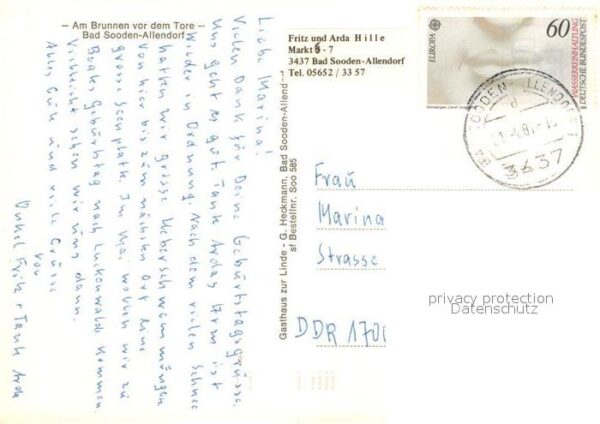 — Am Brunnen vor dem Tore —
Bad Sooden-Allendorf
Liebe Marina!
Vielen Dank für Deine Geburtstagsgrüsse.
Uns geht es gut. Tante Ardas Arm ist
wieder in Ordnung. Nach dem vielen Schnee
hatten wir grosse Ueberschwemmungen
von hier bis zum nächsten Ort eine
grosse Seenplatte. Im Mai wollen wir zu
Beates Geburtstag nach Luckenwalde kommen.
Vielleicht sehen wir uns dann.
Alles Gute und viele Grüsse
von
Onkel Fritz + Tante Arda
Gasthaus zur Linde - G. Heckmann, Bad Sooden-Allend
sf Bestellnr. Soo 585
Fritz und Arda Hille
Markt 6 - 7
3437 Bad Sooden-Allendorf
Tel. 05652 / 33 57
EUROPA
60
WASSERREINHALTUNG
DEUTSCHE BUNDESPOST
BAD SOODEN-ALLENDORF
d
3437
Frau
Marina
Strasse
DDR 1701
privacy protection
Datenschutz